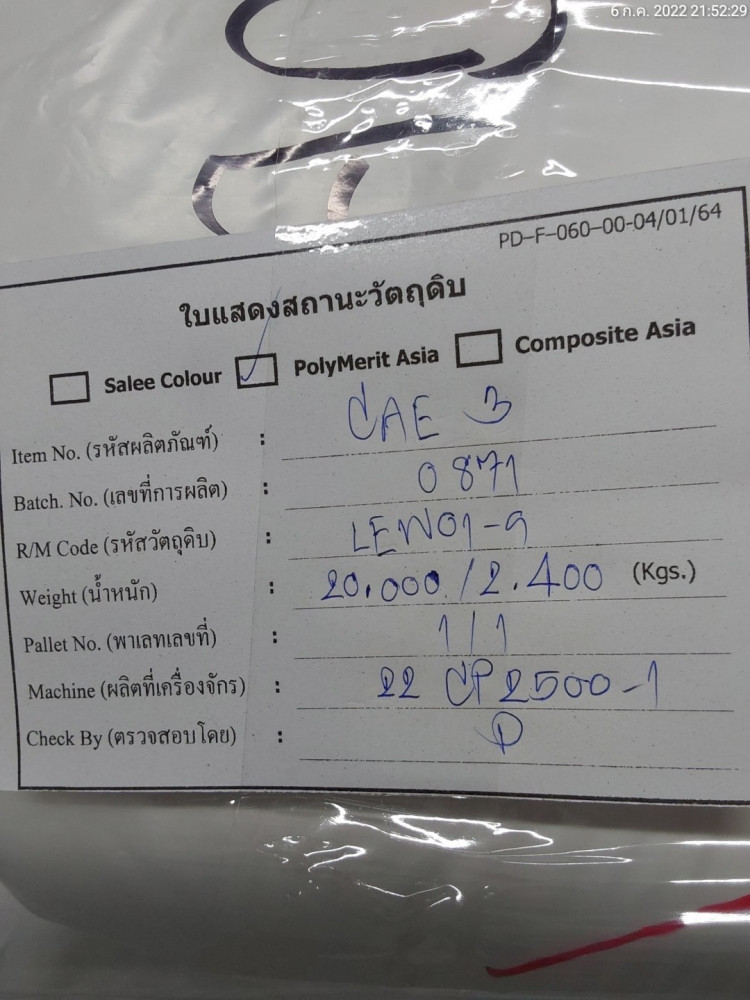 6 ก.ค. 2022 21:52:29
PD-F-060-00-04/01/64
ใบแสดงสถานะวัตถุดิบ
Salee Colour PolyMerit Asia Composite Asia
Item No. (รหัสผลิตภัณฑ์) : CAE 3
Batch. No. (เลขที่การผลิต) : 0871
R/M Code (รหัสวัตถุดิบ) : LEW01-9
Weight (น้ำหนัก) : 20.000 / 2.400 (Kgs.)
Pallet No. (พาเลทเลขที่) : 1/1
Machine (ผลิตที่เครื่องจักร) : 22 CP2500-1
Check By (ตรวจสอบโดย) :